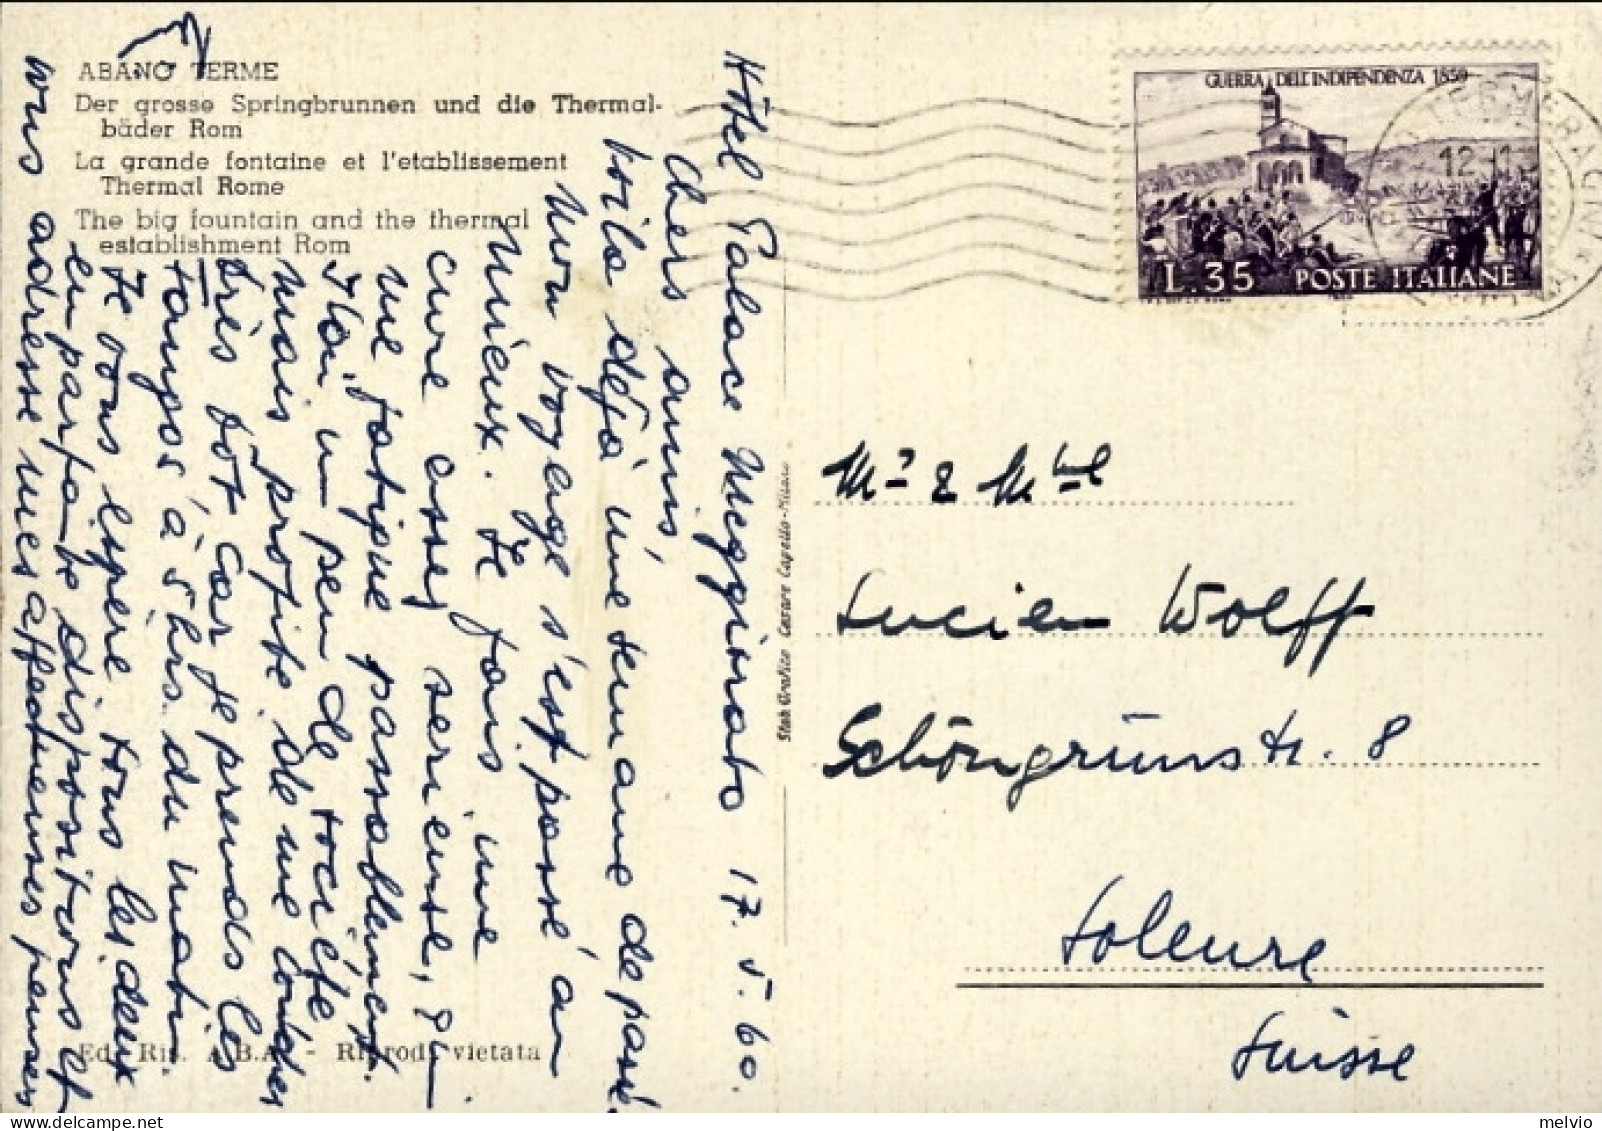 ABANO TERME
Der grosse Springbrunnen und die Thermal-
bäder Rom
La grande fontaine et l'etablissement
Thermal Rome
The big fountain and the thermal
establishment Rom
Hôtel Palace Meggiorato 17.5.60.
Chers amis,
Voilà déjà une semaine de passé.
Mon voyage s'est passé au
mieux. Je fais une
cure assez serieuse, qui
me fatigue passablement.
J'ai un peu de société
mais profite de me coucher
très tôt car je prends les
à 5 hrs. du matin.
Je vous espère tous les deux
en parfaite disposition et
vous adresse mes affectueuses pensées
Ed. Ris. A.B.A. - Riprod. vietata
Stab. Grafico Cesare Capello - Milano
GUERRA DELL'INDIPENDENZA 1859
L. 35 POSTE ITALIANE
12
Mr & Mme
Lucien Wolff
Schöngrünstr. 8
Soleure
Suisse
melvio